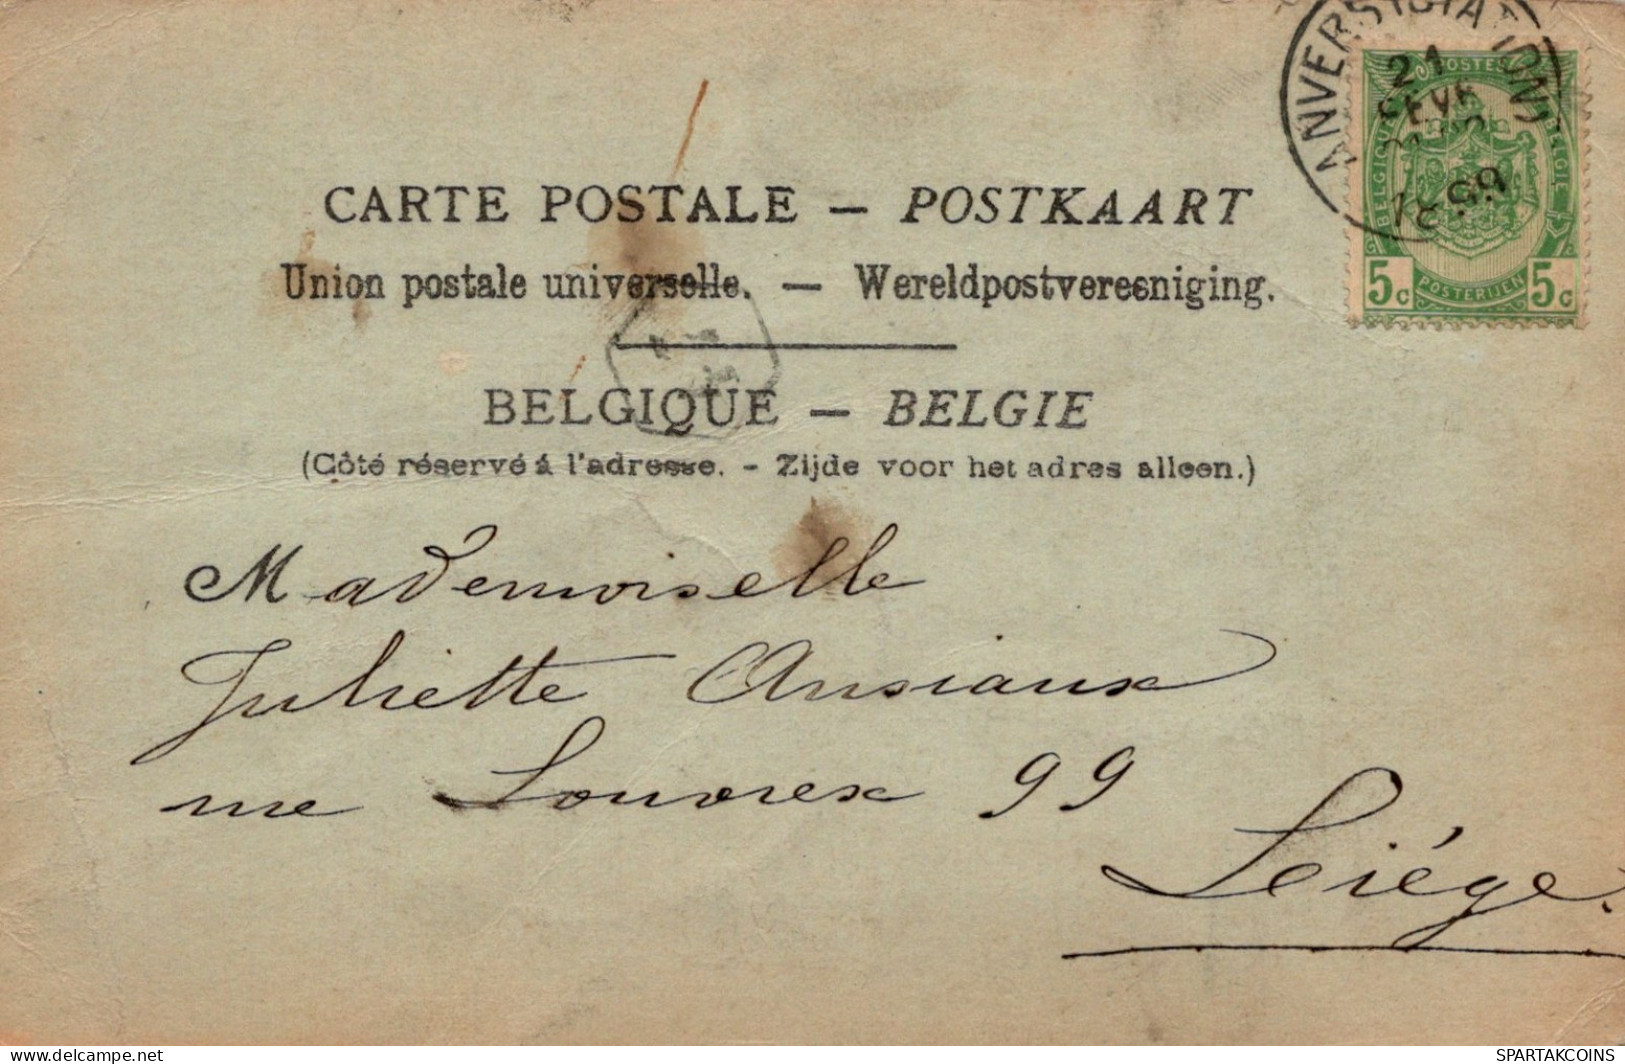 ANVERS (STATION)
21
FEVR
18 99
POSTES
BELGIQUE
BELGIE
5c POSTERIJEN 5c
CARTE POSTALE — POSTKAART
Union postale universelle. — Wereldpostvereeniging.
BELGIQUE — BELGIE
(Côté réservé á l'adresse. - Zijde voor het adres alleen.)
Mademoiselle
Juliette Ansiaux
rue Louvrex 99
Liége.
delcampe.net
SPARTAKCOINS